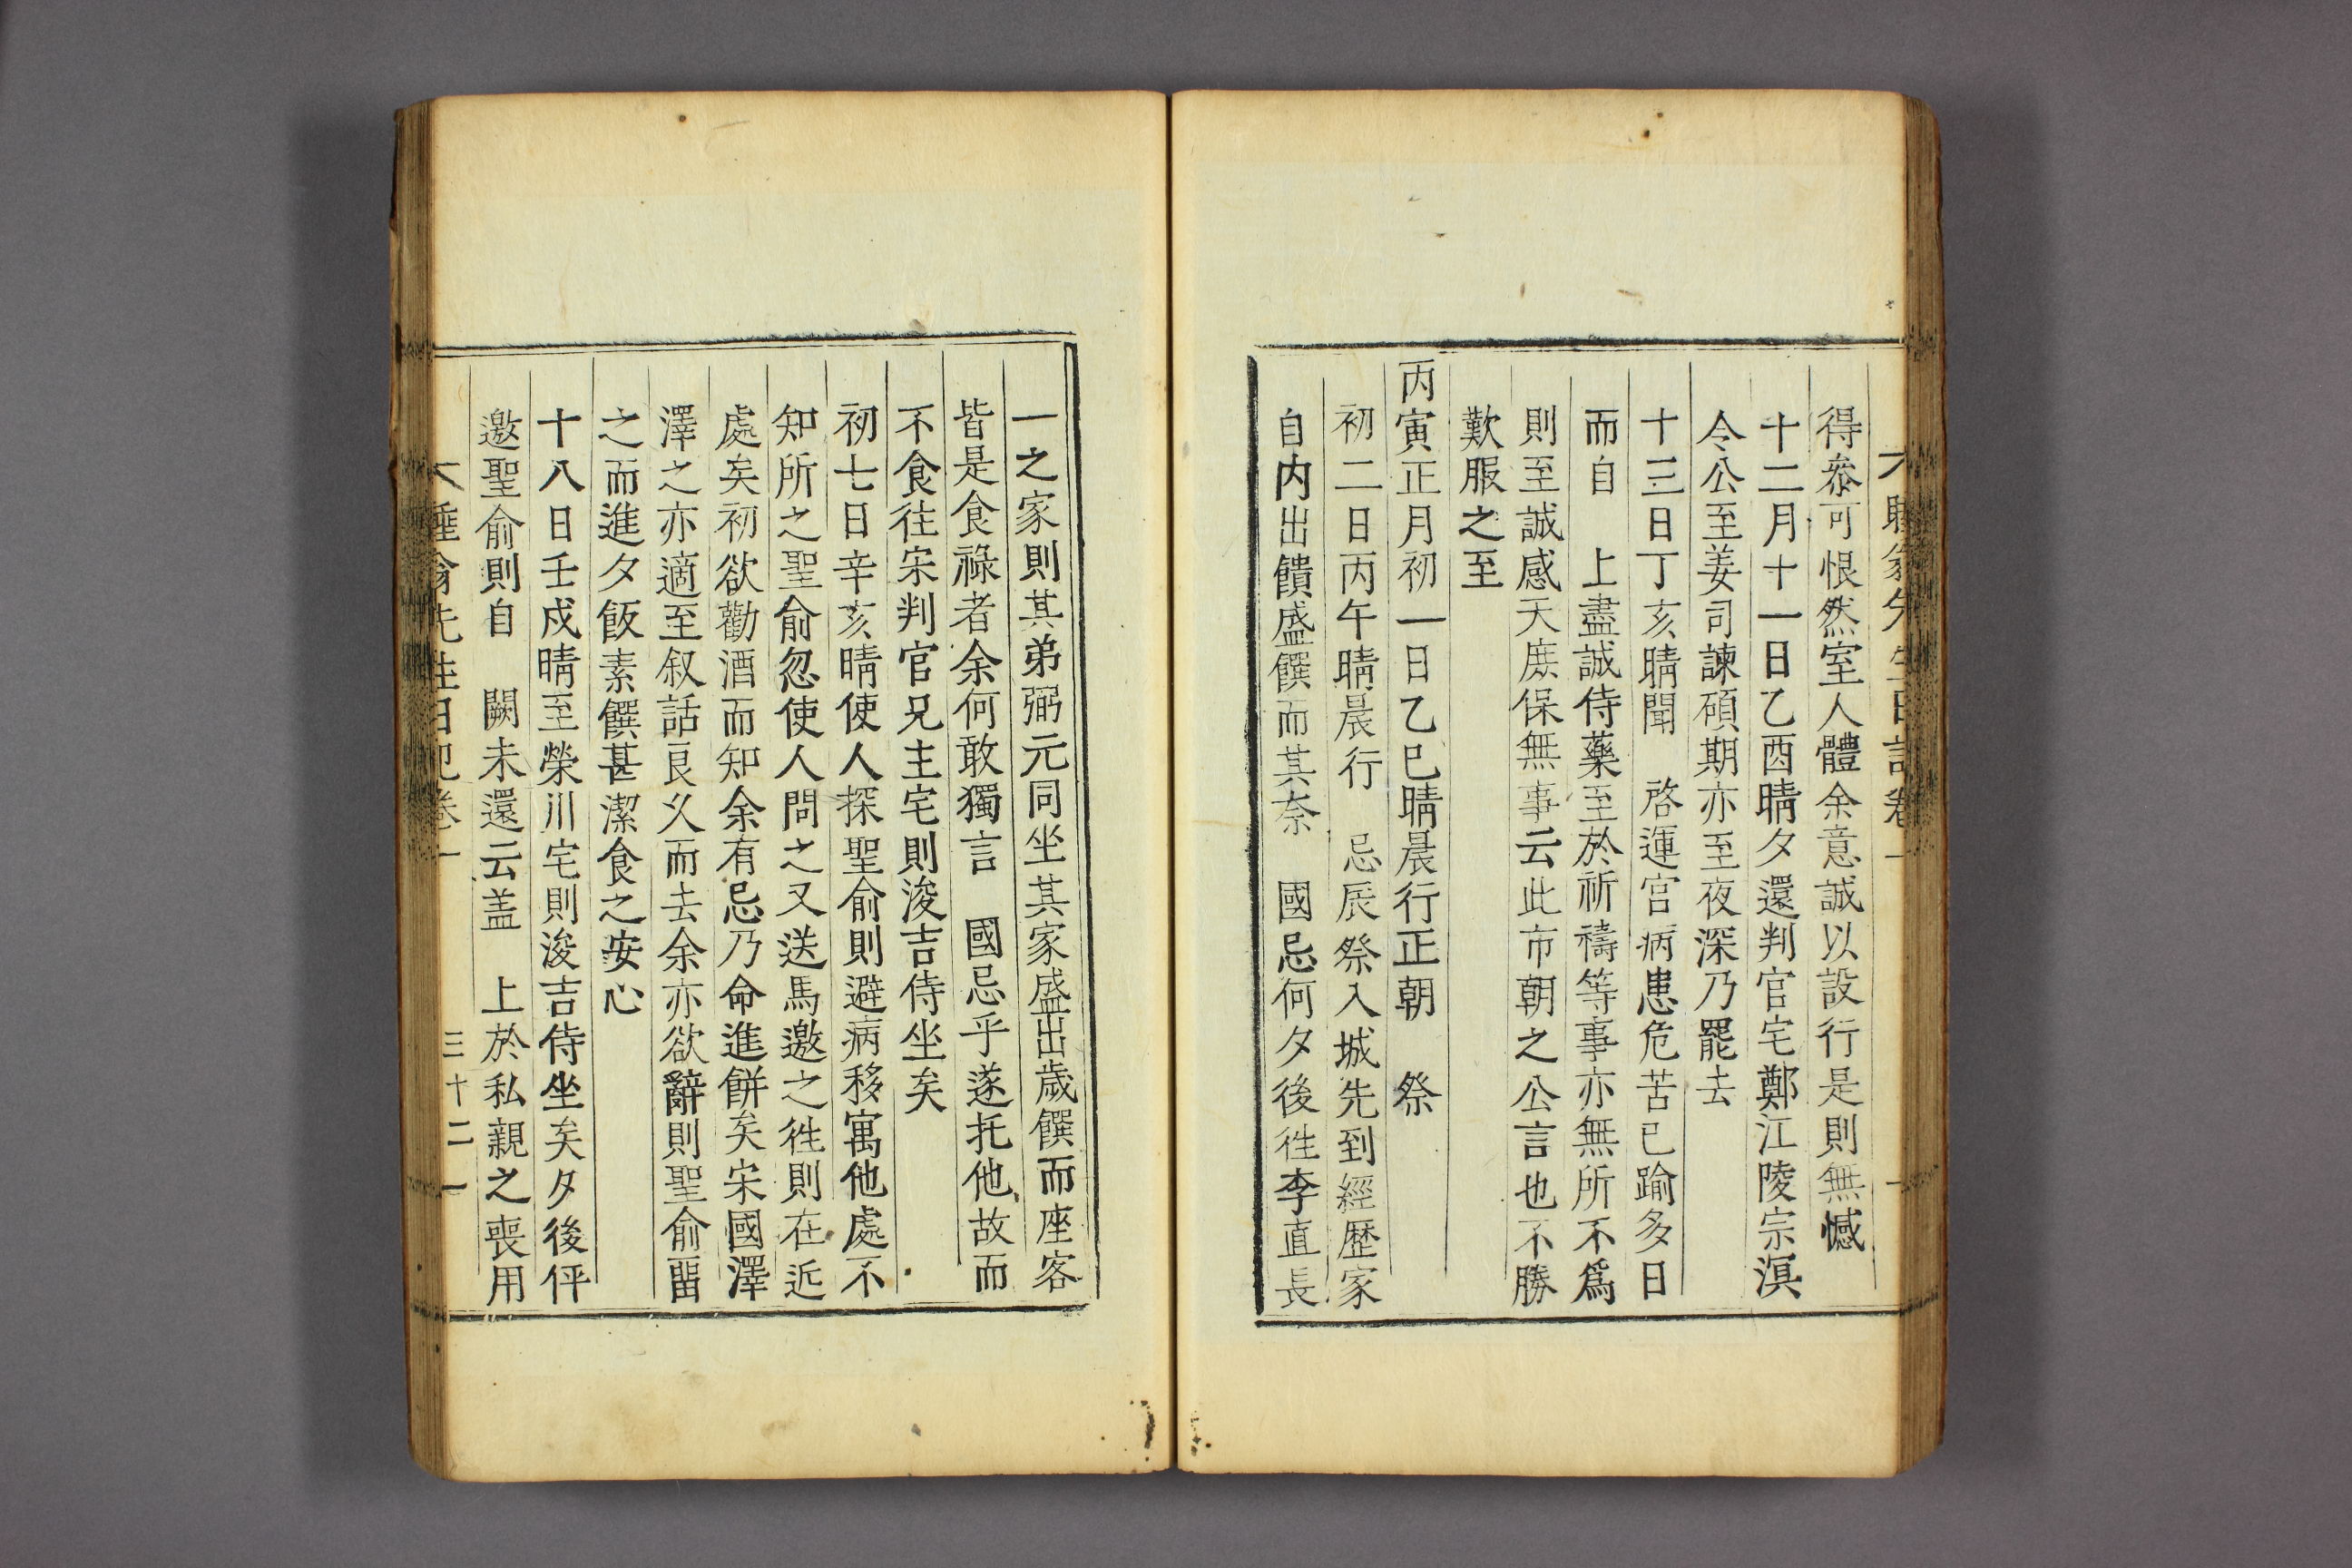 得叅可恨然室人體余意誠以設行是則無憾
十二月十一日乙酉晴夕還判官宅鄭江陵宗溟
令公至姜司諫碩期亦至夜深乃罷去
十三日丁亥晴聞 啓運宮病患危苦已踰多日
而自 上盡誠侍藥至於祈禱等事亦無所不爲
則至誠感天庶保無事云此市朝之公言也不勝
歎服之至
丙寅正月初一日乙巳晴晨行正朝 祭
初二日丙午晴晨行 忌辰祭入城先到經歷家
自内出饋盛饌而其奈 國忌何夕後徃李直長
一之家則其弟弼元同坐其家盛出歲饌而座客
皆是食祿者余何敢獨言 國忌乎遂托他故而
不食往宋判官兄主宅則浚吉侍坐矣
初七日辛亥晴使人探聖俞則避病移寓他處不
知所之聖俞忽使人問之又送馬邀之徃則在近
處矣初欲勸酒而知余有忌乃命進餠矣宋國澤
澤之亦適至叙話良乆而去余亦欲辭則聖俞畱
之而進夕飯素饌甚潔食之安心
十八日壬戌晴至榮川宅則浚吉侍坐矣夕後伻
邀聖俞則自 闕未還云盖 上於私親之喪用
睡翁先生日記卷一 三十二